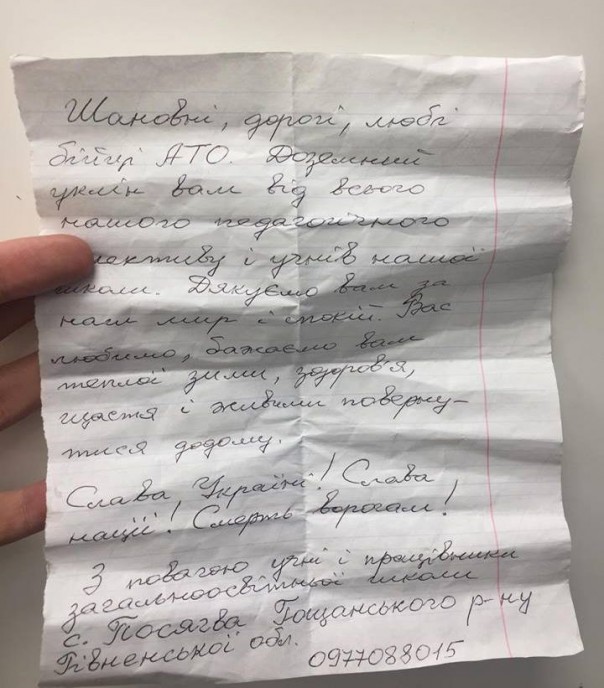 Шановні, дорогі, любі
бійці АТО. Доземний
уклін вам від всього
нашого педагогічного
лективу і учнів нашої
школи. Дякуємо вам за
наш мир і спокій. Вас
любимо, бажаємо вам
теплої зими, здоров'я,
щастя і живими поверну-
тися додому.
Слава Україні! Слава
нації! Смерть ворогам!
З повагою учні і працівники
загальноосвітньої школи
с. Посягва Гощанського р-ну
Рівненської обл.
0977088015